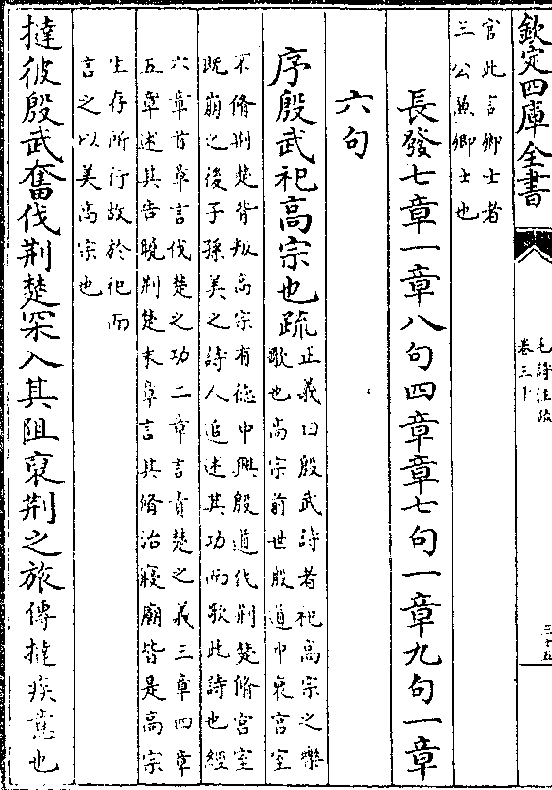 欽定四庫全書
毛詩注疏
卷三十
三十五
官此言卿士者
三公兼卿士也
長發七章一章八句四章章七句一章九句一章
六句
序殷武祀高宗也疏正義曰殷武詩者祀高宗之樂
歌也高宗前世殷道中衰宫室
不脩荆楚背叛高宗有徳中興殷道伐荆楚脩宫室
既崩之後子孫美之詩人追述其功而歌此詩也經
六章首章言伐楚之功二章言責楚之義三章四章
五章述其告曉荆楚末章言其脩治寢廟皆是高宗
生存所行故於祀而
言之以美高宗也
撻彼殷武奮伐荆楚罙入其阻裒荆之旅傳撻疾意也